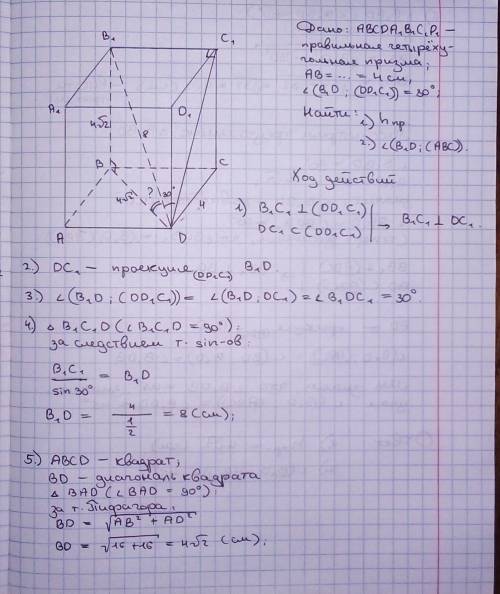 Дано: ABCDA₁B₁C₁D₁ –
правильная четырёху-
гольная призма;
AB = ... = 4 см,
∠(B₁D; (DD₁C₁)) = 30°;
Найти:
1) hпр
2) ∠(B₁D; (ABC)).
Ход действий
B₁
C₁
A₁
D₁
4√2
8
B
C
4√2
?
30°
4
A
D
1) B₁C₁ ⊥ (DD₁C₁)
DC₁ ⊂ (DD₁C₁)
→ B₁C₁ ⊥ DC₁.
2.) DC₁ – проекция (DD₁C₁) B₁D.
3.) ∠(B₁D; (DD₁C₁)) = ∠(B₁D; DC₁) = ∠B₁DC₁ = 30°.
4) △ B₁C₁D (∠B₁C₁D = 90°):
за следствием т. sin-ов:
B₁C₁ / sin 30° = B₁D
B₁D = 4 / (1/2) = 8 (см);
5.) ABCD – квадрат;
BD – диагональ квадрата
△ BAD (∠BAD = 90°)
за т. Пифагора:
BD = √(AB² + AD²)
BD = √(16 + 16) = 4√2 (см);